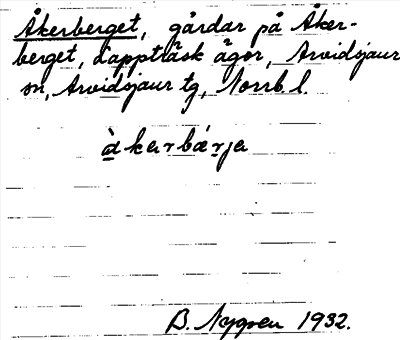 Åkerberget, gårdar på Åker-
berget, Lappträsk ägor, Arvidsjaur
sn, Arvidsjaur tg, Norrb. l.
àkerbǽrje
B. Nygren 1932.